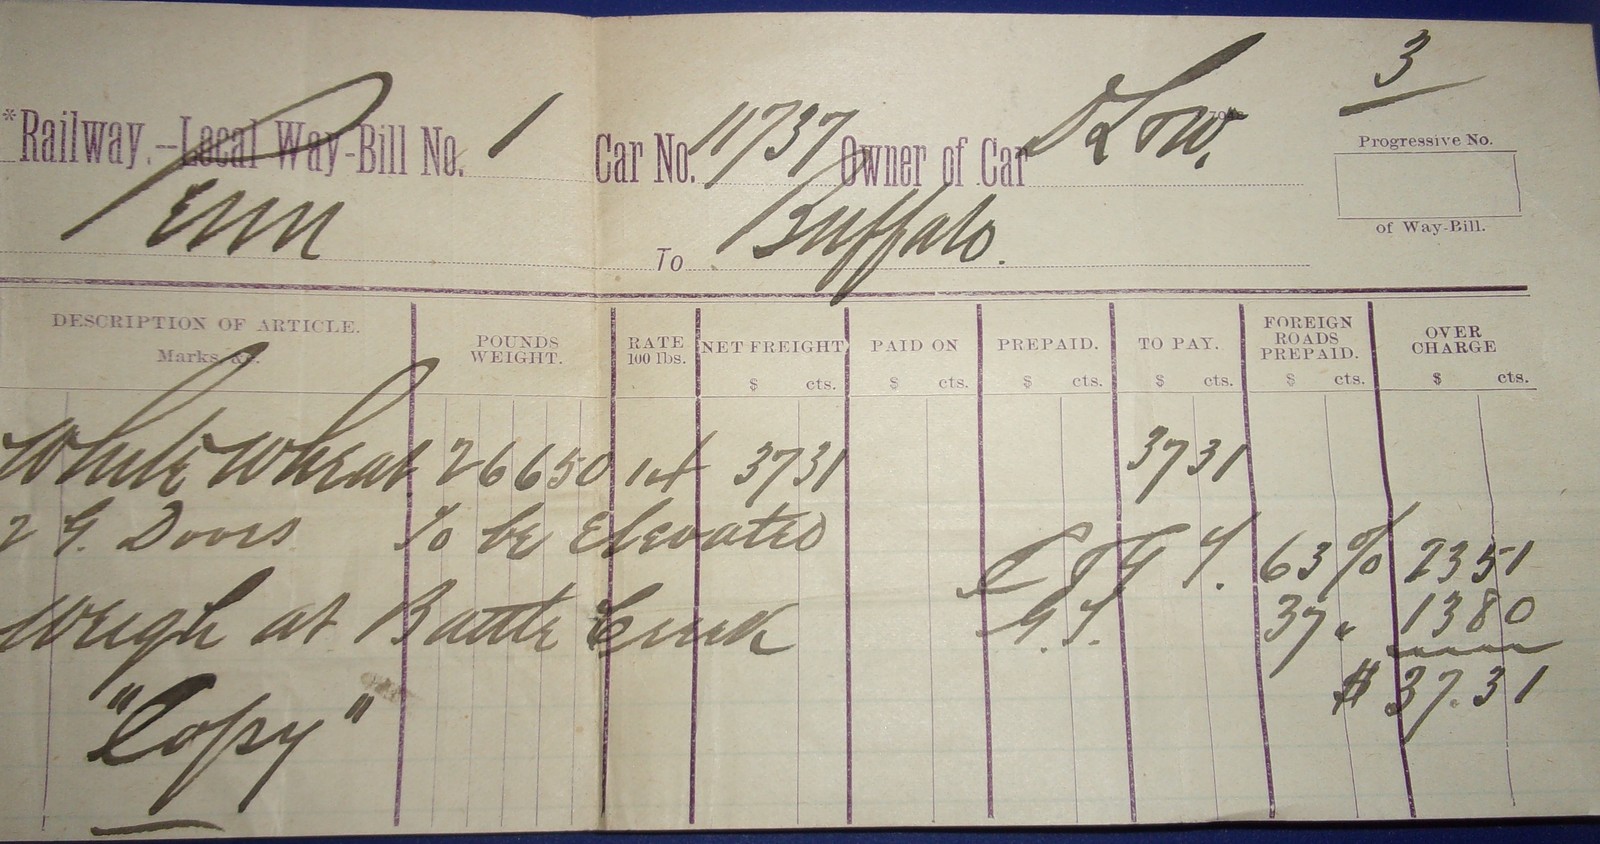 3
Railway.-Local Way-Bill No. 1 Car No. 11737 Owner of Car
Progressive No.
Penn To Buffalo.
of Way-Bill.
DESCRIPTION OF ARTICLE. Marks, &c. POUNDS WEIGHT. RATE 100 lbs. NET FREIGHT $ cts. PAID ON $ cts. PREPAID. $ cts. TO PAY. $ cts. FOREIGN ROADS PREPAID. $ cts. OVER CHARGE $ cts.
White Wheat 26650 14 3731 3731
2 G. Doors To be Elevated 63% 2351
Weigh at Battle Creek G.T. 37 " 1380
$ 37.31
"Copy"